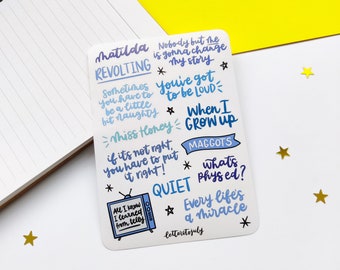 Matilda
Nobody but me
is gonna change
my story
REVOLTING
Sometimes
you have to
be a little
bit naughty
you've got
to be loud
Miss Honey
When I
GROW UP
MAGGOTS
if it's not right
you have to put
it right!
what's
phys ed?
QUIET
All I know
I learned
from telly
Every life's
a miracle
letteritjuly